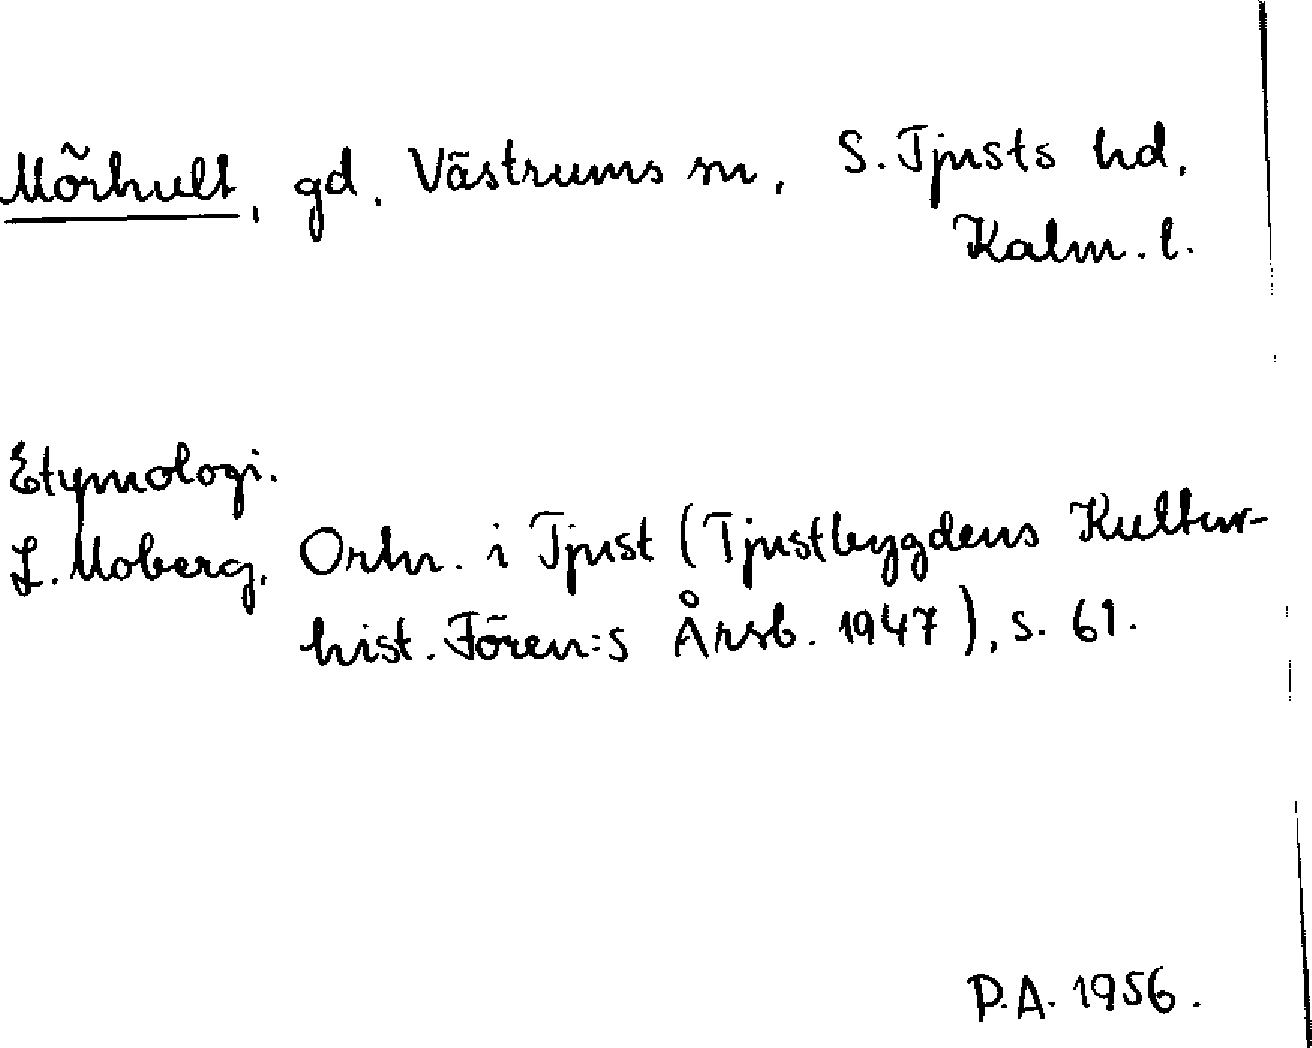 Mörhult, gd. Västrums sn, S. Tjusts hd,
Kalm. l.
Etymologi.
L. Moberg, Ortn. i Tjust (Tjustbygdens Kultur-
hist. Fören:s Årsb. 1947), s. 61.
P.A. 1956.